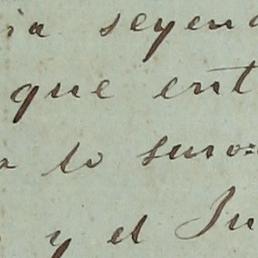 ia seyen
que ent
a lo suso=
y el Ju